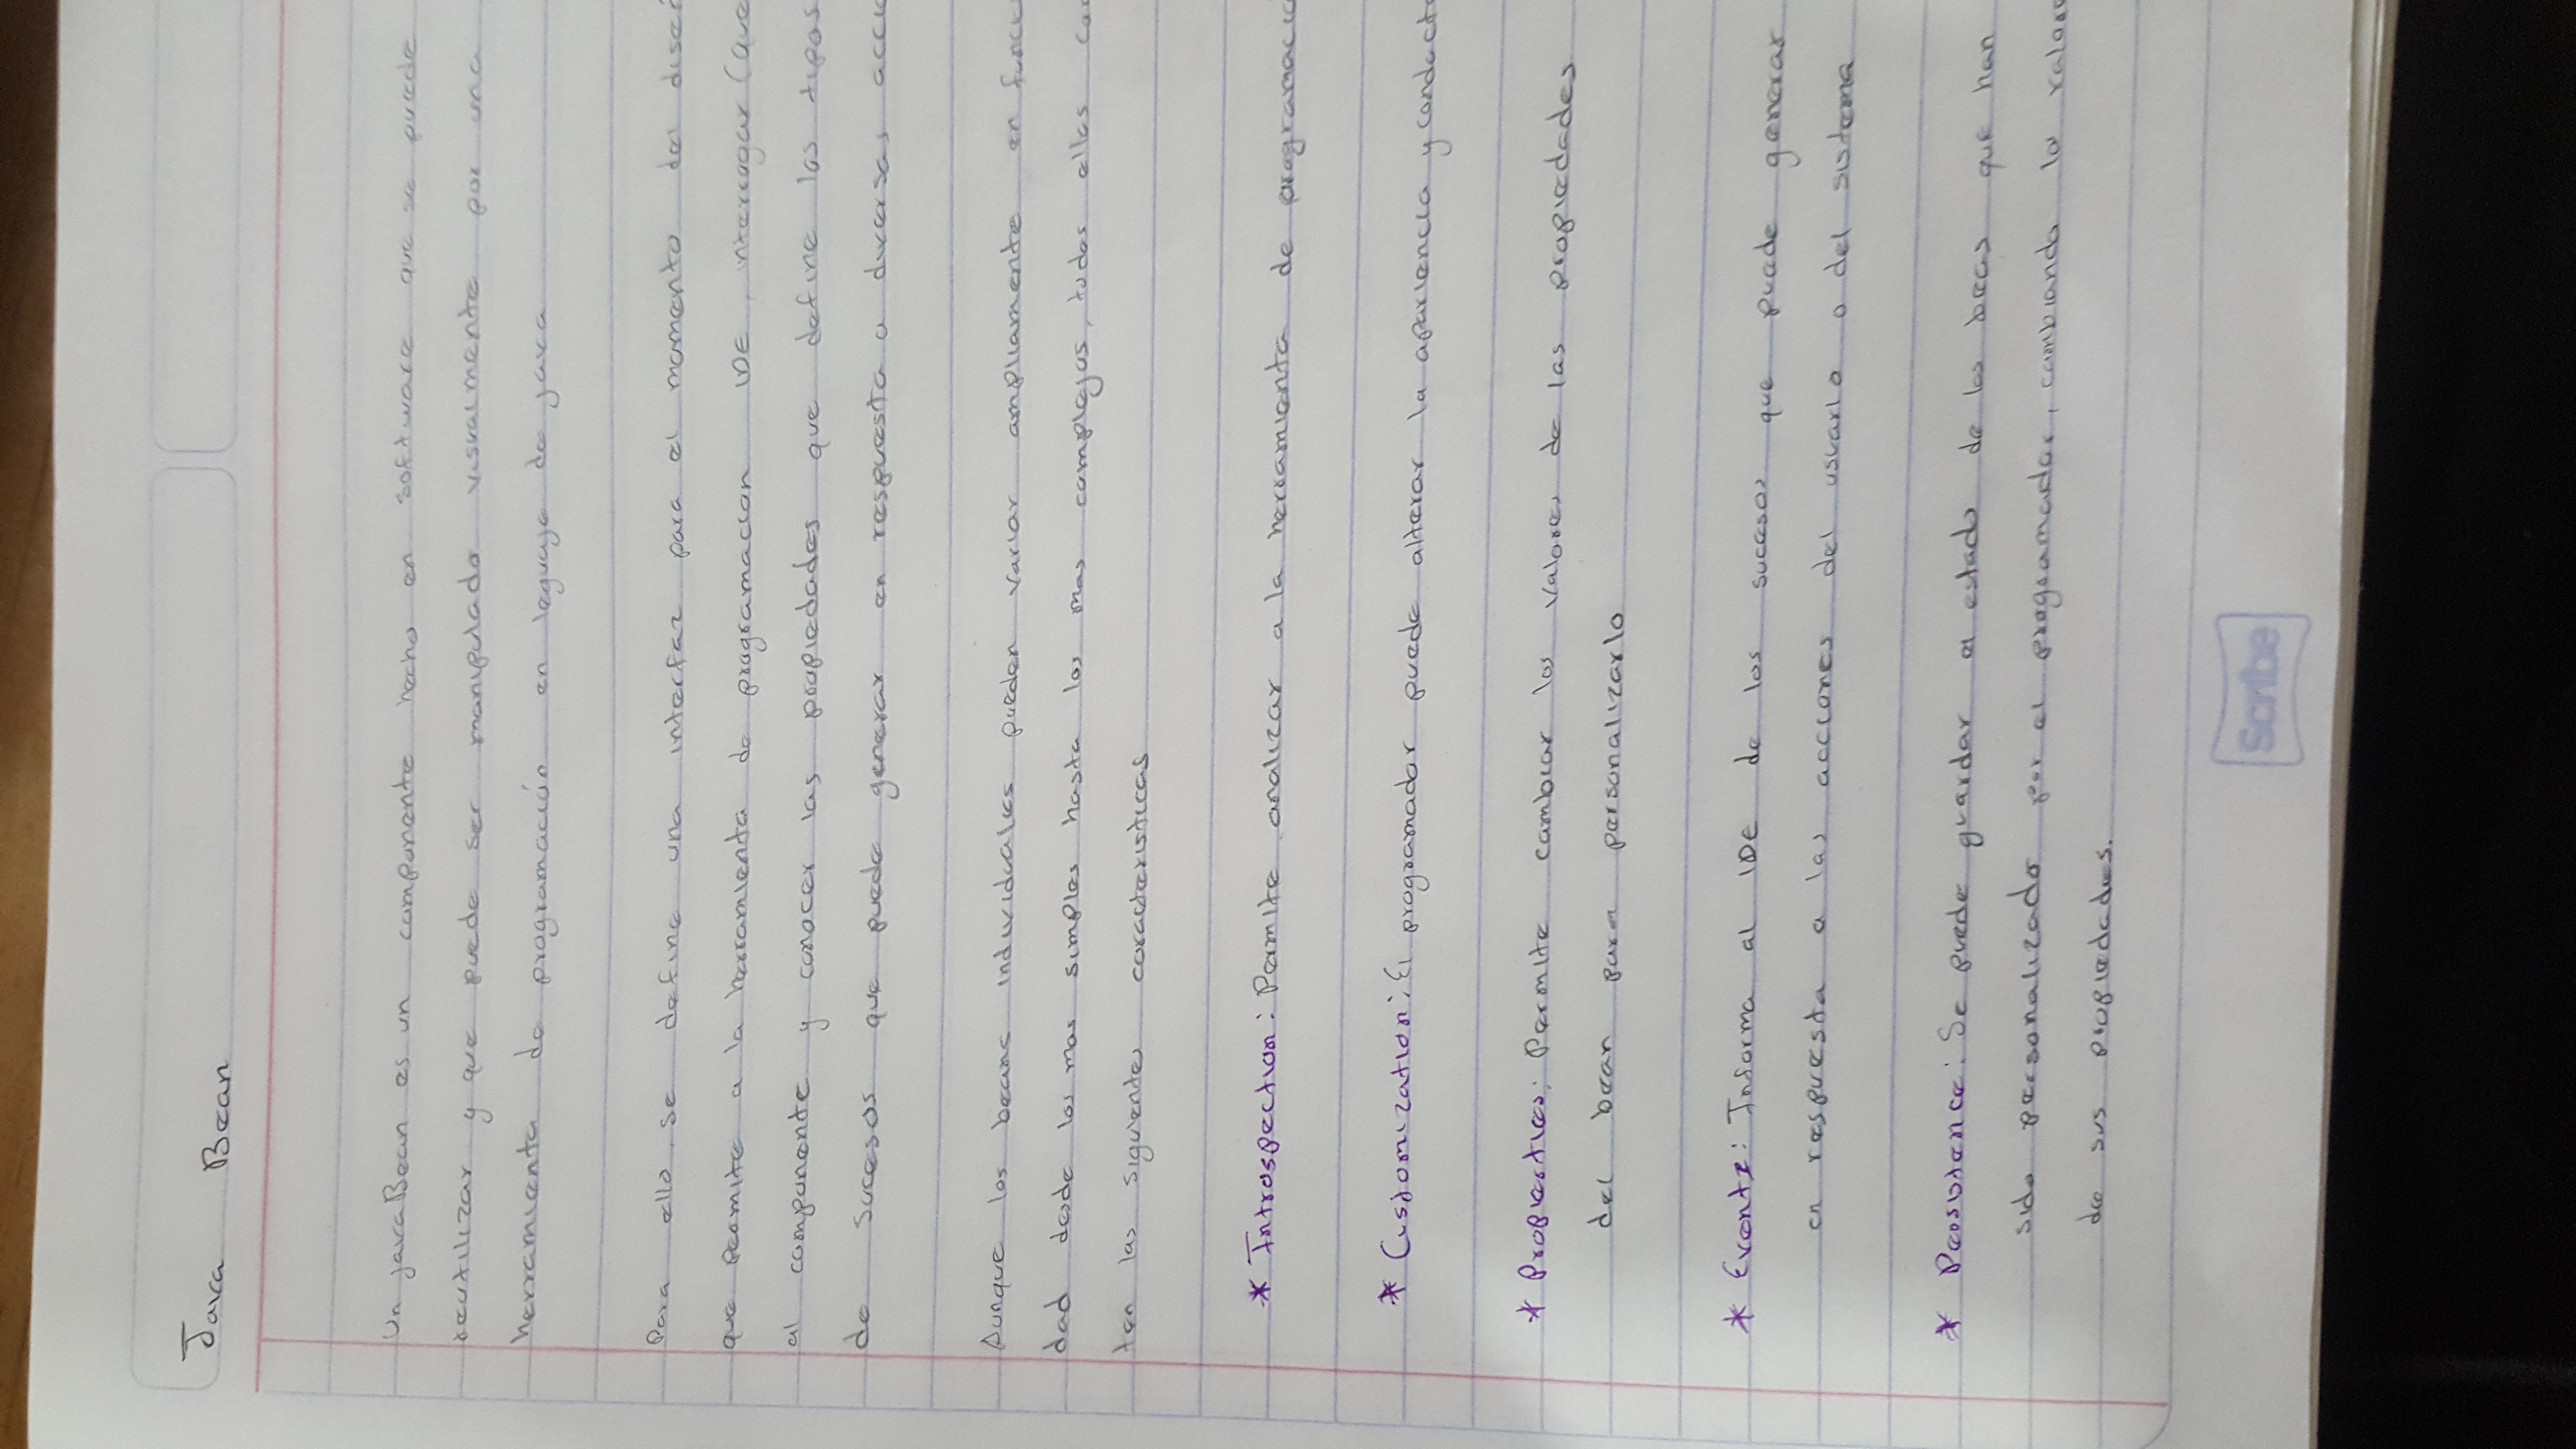 Java Bean
Un javaBean es un componente hecho en software que se puede
reutilizar y que puede ser manipulado visualmente por una
herramienta de programación en leguaje de java
Para ello se define una interfaz para el momento del diseñ
que permite a la herramienta de programacion IDE, interrogar (que
al componente y conocer las propiedades que define los tipos
de sucesos que puede generar en respuesta a diversas accio
Aunque los beans individuales pueden variar ampliamente en funci
dad desde los mas simples hasta los mas complejos, todos ellos co
ten las siguientes caracteristicas
* Introspection: Permite analizar a la herramienta de programacio
* Customization: El programador puede alterar la apariencia y conducta
* Propierties: Permite cambiar los valores de las propiedades
del bean para personalizarlo
* Events: Informa al IDE de los sucesos que puede generar
en respuesta a las acciones del usuario o del sistema
* Persistence: Se puede guardar el estado de los beas que han
sido personalizado por el programador, cambiando los valore
de sus propiedades.
Scribe